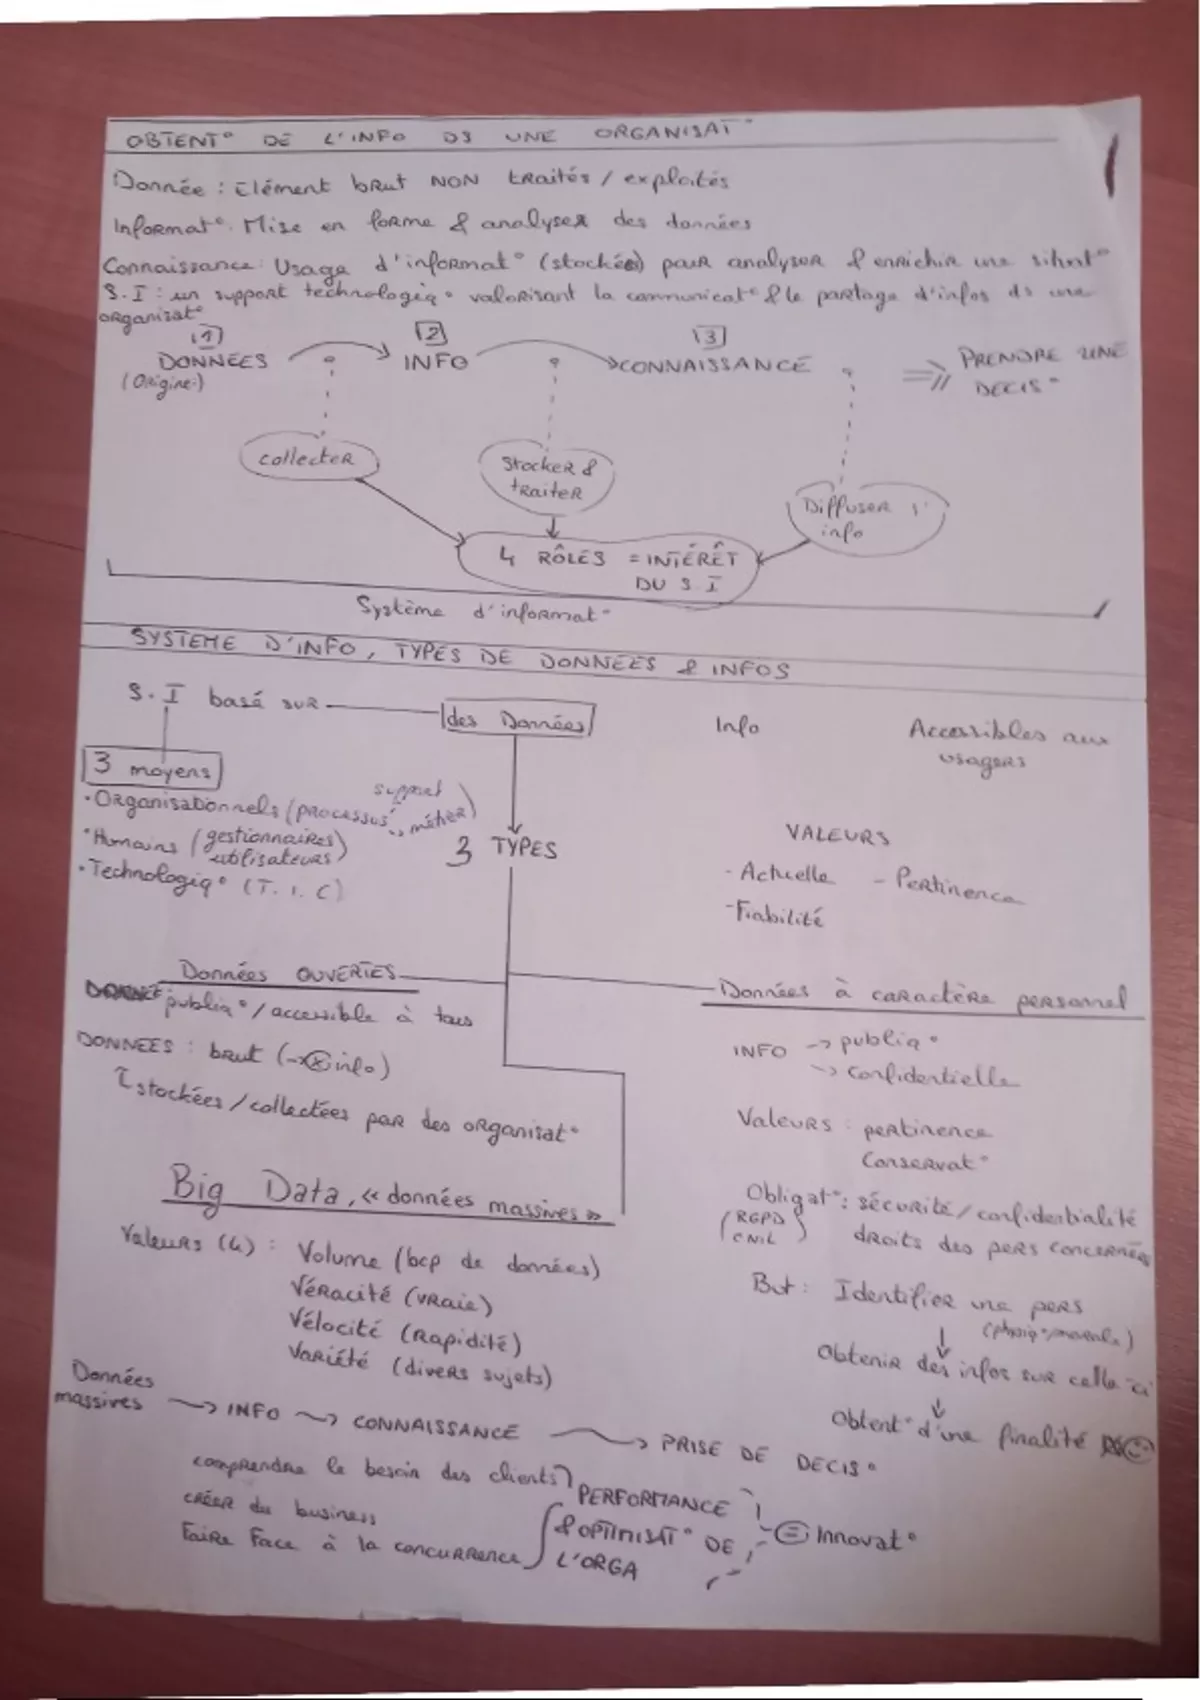 OBTENT° DE L'INFO DS UNE ORGANISAT°
Donnée : Elément brut NON traités / exploités
Informat°: Mise en forme & analyser des données
Connaissance: Usage d'informat° (stockées) pour analyser & enrichir une situat°
S.I : un support technologiq° valorisant la communicat° & le partage d'infos ds une
organisat°
1 2 3
DONNÉES INFO CONNAISSANCE PRENDRE UNE
(Origine:) DECIS°
collecter
Stocker &
traiter
Diffuser l'
info
4 RÔLES = INTÉRÊT
DU S.I
Système d'informat°
SYSTEME D'INFO, TYPES DE DONNÉES & INFOS
S.I basé sur des Données Info Accessibles aux
usagers
3 moyens
• Organisationnels (processus support
métier)
• Humains (gestionnaires
utilisateurs)
• Technologiq° (T.I.C)
3 TYPES
VALEURS
- Actuelle - Pertinence
- Fiabilité
Données OUVERTES
publiq° / accessible à tous
DONNEES : brut (→ info)
stockées / collectées par des organisat°
Données à caractère personnel
INFO → publiq°
→ confidentielle
Valeurs : pertinence
Conservat°
Obligat°: sécurité / confidentialité
(RGPD
CNIL) droits des pers concernées
But : Identifier une pers
(physiq°/morale)
↓
Obtenir des infos sur celle-ci
↓
Obtent° d'une finalité
Big Data, « données massives »
Valeurs (4) : Volume (bcp de données)
Véracité (vraie)
Vélocité (rapidité)
Variété (divers sujets)
Données
massives → INFO → CONNAISSANCE → PRISE DE DECIS°
comprendre le besoin des clients
créer du business
Faire face à la concurrence
PERFORMANCE
& OPTIMISAT° DE
L'ORGA
= Innovat°